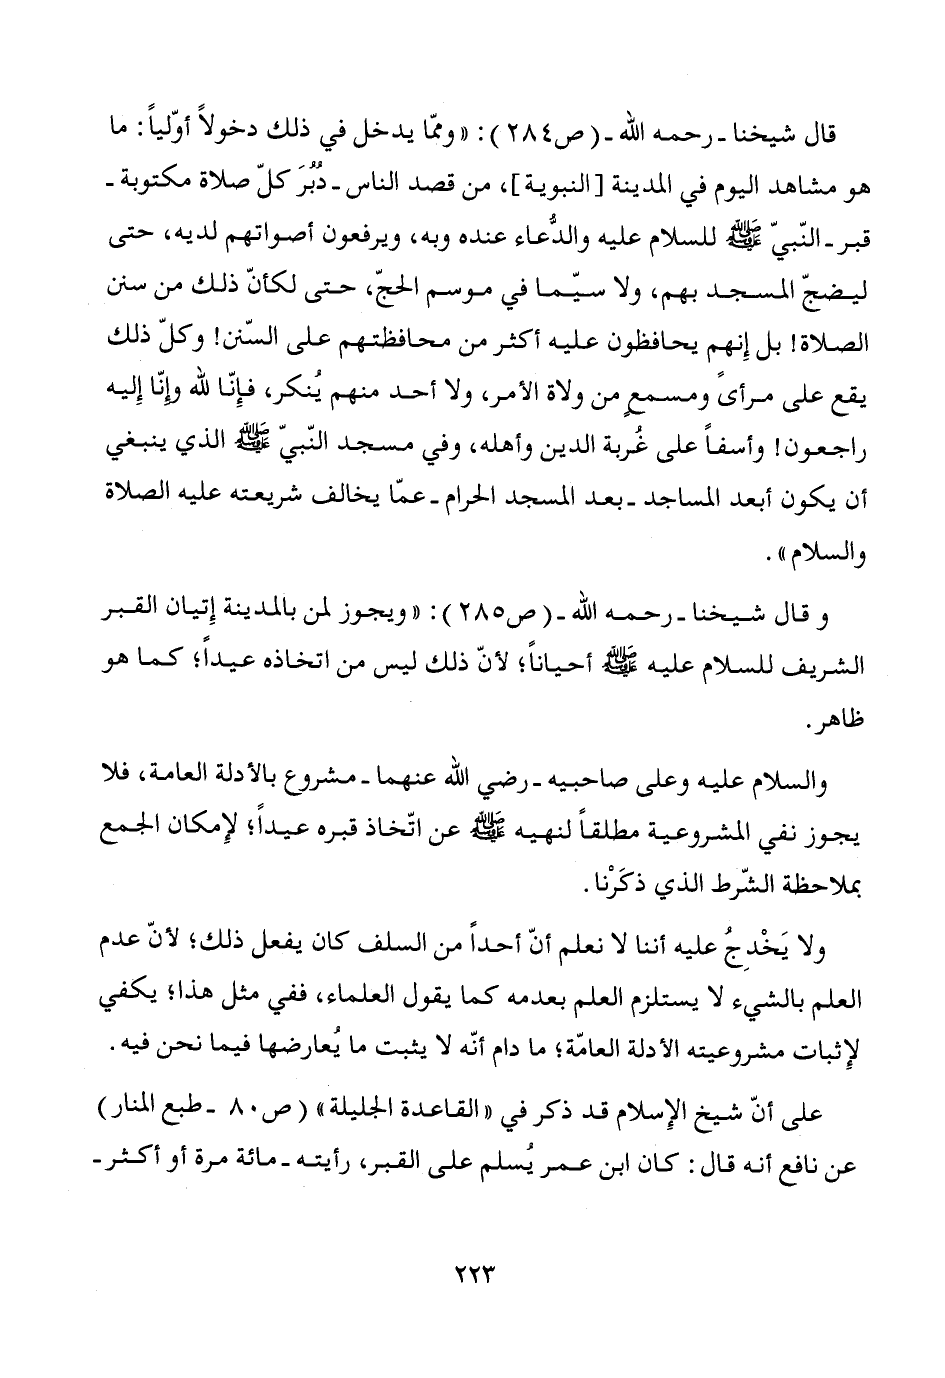 قال شيخنا ـ رحمه الله ـ (ص٢٨٤): «وممّا يدخل في ذلك دخولاً أوّلياً: ما
هو مشاهد اليوم في المدينة [النبوية]، من قصد الناس ـ دُبُرَ كلّ صلاة مكتوبة ـ
قبر ـ النّبيّ ﷺ للسلام عليه والدُّعاء عنده وبه، ويرفعون أصواتهم لديه، حتى
ليضجّ المسجد بهم، ولا سيّما في موسم الحجّ، حتى لكأنّ ذلك من سنن
الصلاة! بل إنهم يحافظون عليه أكثر من محافظتهم على السّنن! وكلّ ذلك
يقع على مرأىً ومسمعٍ من ولاة الأمر، ولا أحد منهم يُنكر، فإنّا لله وإنّا إليه
راجعون! وأسفاً على غُربة الدين وأهله، وفي مسجد النّبيّ ﷺ الذي ينبغي
أن يكون أبعد المساجد ـ بعد المسجد الحرام ـ عمّا يخالف شريعته عليه الصلاة
والسلام».
و قال شيخنا ـ رحمه الله ـ (ص٢٨٥): «ويجوز لمن بالمدينة إتيان القبر
الشريف للسلام عليه ﷺ أحياناً؛ لأنّ ذلك ليس من اتخاذه عيداً؛ كما هو
ظاهر.
والسلام عليه وعلى صاحبيه ـ رضي الله عنهما ـ مشروع بالأدلة العامة، فلا
يجوز نفي المشروعية مطلقاً لنهيه ﷺ عن اتّخاذ قبره عيداً؛ لإمكان الجمع
بملاحظة الشّرط الذي ذكَرْنا.
ولا يَخْدِجُ عليه أننا لا نعلم أنّ أحداً من السلف كان يفعل ذلك؛ لأنّ عدم
العلم بالشيء لا يستلزم العلم بعدمه كما يقول العلماء، ففي مثل هذا؛ يكفي
لإثبات مشروعيته الأدلة العامّة؛ ما دام أنّه لا يثبت ما يُعارضها فيما نحن فيه.
على أنّ شيخ الإسلام قد ذكر في «القاعدة الجليلة» (ص٨٠ ـ طبع المنار)
عن نافع أنه قال: كان ابن عمر يُسلم على القبر، رأيته ـ مائة مرة أو أكثر ـ
٢٢٣